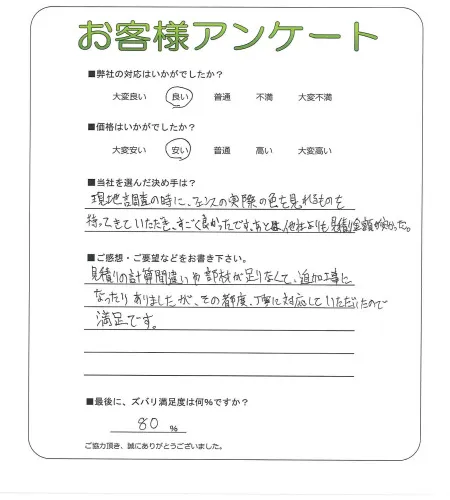 お客様アンケート
■弊社の対応はいかがでしたか？
大変良い 良い 普通 不満 大変不満
■価格はいかがでしたか？
大変安い 安い 普通 高い 大変高い
■当社を選んだ決め手は？
現地調査の時に、フェンスの実際の色を見れるものを
持ってきていただき、すごく良かったです。あとは、他社よりも見積り金額が安かった。
■ご感想・ご要望などをお書き下さい。
見積りの計算間違いや部材が足りなくて、追加工事に
なったりありましたが、その都度、丁寧に対応していただいたので
満足です。
■最後に、ズバリ満足度は何%ですか？
80 %
ご協力頂き、誠にありがとうございました。